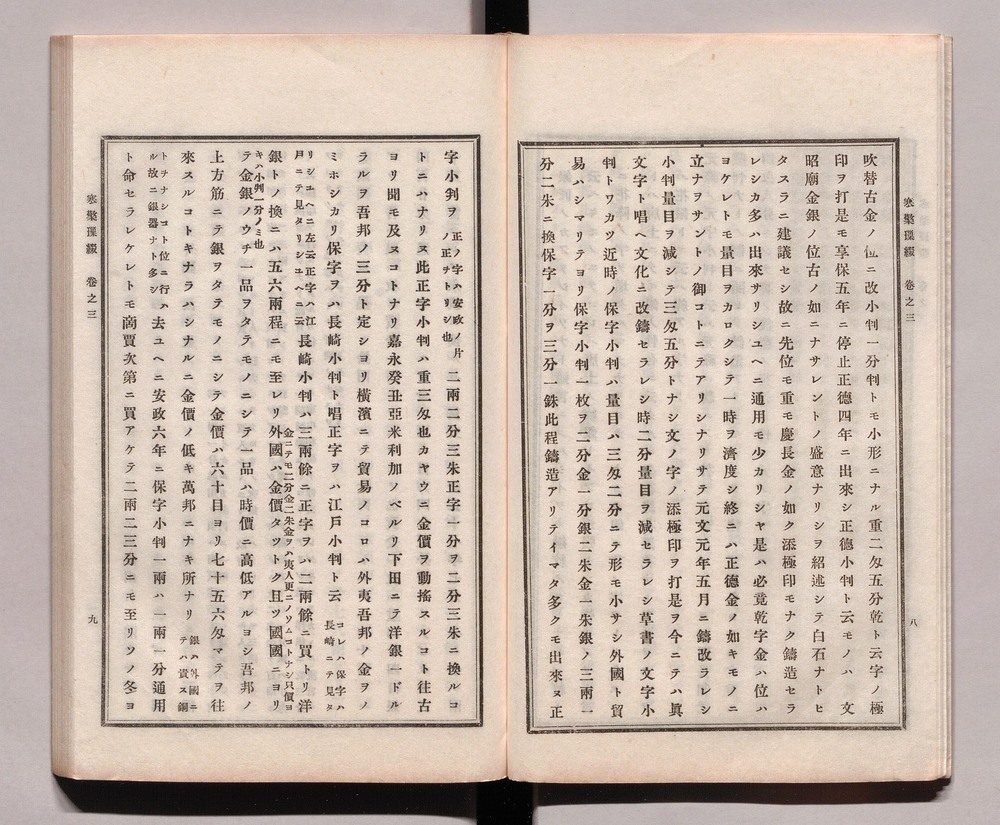 寒檠璅綴　卷之三　八
吹替古金ノ位ニ改小判一分判トモ小形ニナル重二匁五分乾ト云字ノ極
印ヲ打是モ享保五年ニ停止正德四年ニ出來シ正德小判ト云モノハ　文
昭廟金銀ノ位古ノ如ニナサレントノ盛意ナリシヲ紹述シテ白石ナトヒ
タスラニ建議セシ故ニ先位モ重モ慶長金ノ如ク添極印モナク鑄造セラ
レシカ多ハ出來サリシユヘニ通用モ少カリシヤ是ハ必竟乾字金ハ位ハ
ヨケレトモ量目ヲカロクシテ一時ヲ濟度シ終ニハ正德金ノ如キモノニ
立ナヲサントノ御コトニテアリシナリサテ元文元年五月ニ鑄改ラレシ
小判量目ヲ減シテ三匁五分トナシ文ノ字ノ添極印ヲ打是ヲ今ニテハ眞
文字ト唱ヘ文化ニ改鑄セラレシ時二分量目ヲ減セラレシ草書ノ文字小
判トワカツ近時ノ保字小判ハ量目ハ三匁二分ニテ形モ小サシ外國ト貿
易ハシマリテヨリ保字小判一枚ヲ二分金一分銀二朱金一朱銀ノ三兩一
分二朱ニ換保字一分ヲ三分一銖此程鑄造アリテイマタ多クモ出來ヌ正
字小判ヲ正ノ字ハ安政ノ片ノ正ヲトリシ也二兩二分三朱正字一分ヲ二分三朱ニ換ルコ
トニハナリヌ此正字小判ハ重三匁也カヤウニ金價ヲ動搖スルコト往古
ヨリ聞モ及ヌコトナリ嘉永癸丑亞米利加ノベルリ下田ニテ洋銀一ドル
ラルヲ吾邦ノ三分ト定シヨリ橫濱ニテ貿易ノコロハ外夷吾邦ノ金ヲノ
ミホシカリ保字ヲハ長崎小判ト唱正字ヲハ江戸小判ト云コレハ保字ハ長崎ニテ見タ
リシユヘニ左云正字ハ江戸ニテ見タリシユヘニ云長崎小判ハ三兩餘ニ正字ヲハ二兩餘ニ買トリ洋
金ニテモ二分金二朱金ヲハ夷人更ニノソムコトナシ只價ヨ
キハ小判一分ノミ也
銀トノ換ニハ五六兩程ニモ至レリ外國ハ金價タツトク且ツ國國ニヨリ
テ金銀ノウチ一品ヲタテモノニシテ一品ハ時價ニ高低アルヨシ吾邦ノ
上方筋ニテ銀ヲタテモノニシテ金價ハ六十目ヨリ七十五六匁マテヲ往
來スルコトキナラハシナルニ金價ノ低キ萬邦ニナキ所ナリ銀ハ外國ニテハ貨ス銅
トチナシコト位ニ行ハル故ニ銀器ナト多シ去ユヘニ安政六年ニ保字小判一兩ハ一兩一分通用
ト命セラレケレトモ商賈次第ニ買アケテ二兩二三分ニモ至リソノ冬ヨ
寒檠璅綴　卷之三　九